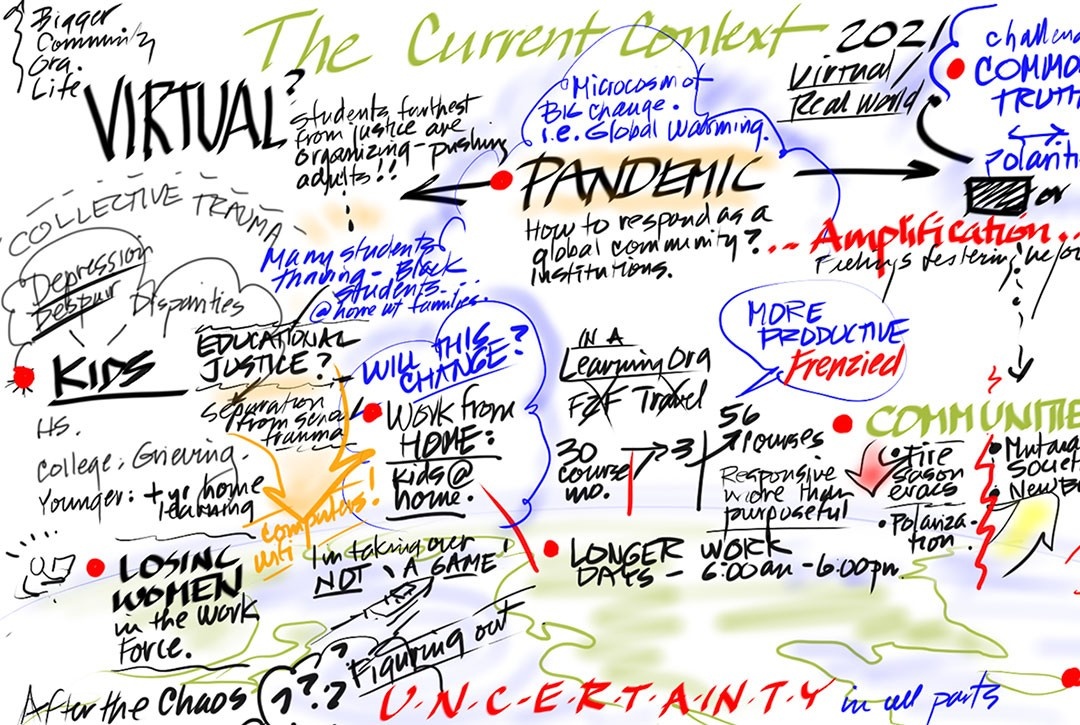 The Current Context 2021
Bigger
Community
Gra.
Life
VIRTUAL?
students furthest
from justice are
organizing - pushing
adults!!
Microcosm of
Big Change.
i.e. Global Warming.
Virtual/
Real World
COMMO
TRUTH
polariti
or
PANDEMIC
How to respond as a
global community?
Institutions.
... Amplification...
COLLECTIVE TRAUMA
Depression
Despair
Disparities
Many students
thriving - Black
students...
@ home w/ families.
KIDS
EDUCATIONAL
JUSTICE?
Separation
trauma
HS.
College: Grieving.
Younger: + yr home
learning
WILL THIS
CHANGE?
Work from
HOME:
Kids @
home.
IN A
Learning Org
F2F Travel
30
course
mo.
→ 3
56
courses
Responsive
more than
purposeful
MORE
PRODUCTIVE
Frenzied
COMMUNITIE
• Fire
Season
• Polariza-
tion.
• Mutual
Societ
• New B
computers!
LOSING
WOMEN
in the Work
Force.
I'm taking over
NOT \ A GAME!
LONGER WORK
DAYS - 6:00am - 6:00pm.
After the Chaos
???
Figuring out
U-N-C-E-R-T-A-I-N-T-Y in all parts